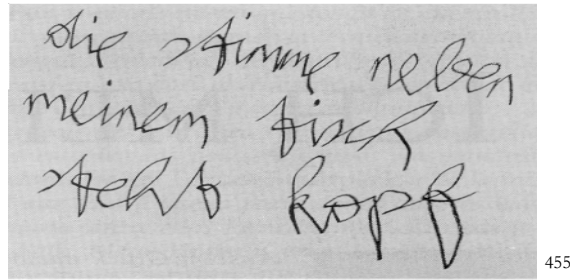 die stimme neben
meinem tisch
steht kopf
455